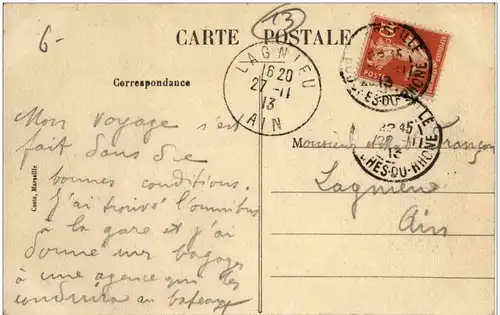 6-
13
CARTE POSTALE
LAGNIEU
16 20
27 -11
13
AIN
BOUCHES-DU-RHONE
Correspondance
Mon voyage s'est
fait dans de
bonnes conditions.
J'ai trouvé l'omnibus
à la gare et j'ai
donné mes bagages
à une agence qui les
conduira au bateau
Costa, Marseille
Monsieur Françon
Lagnieu
Ain